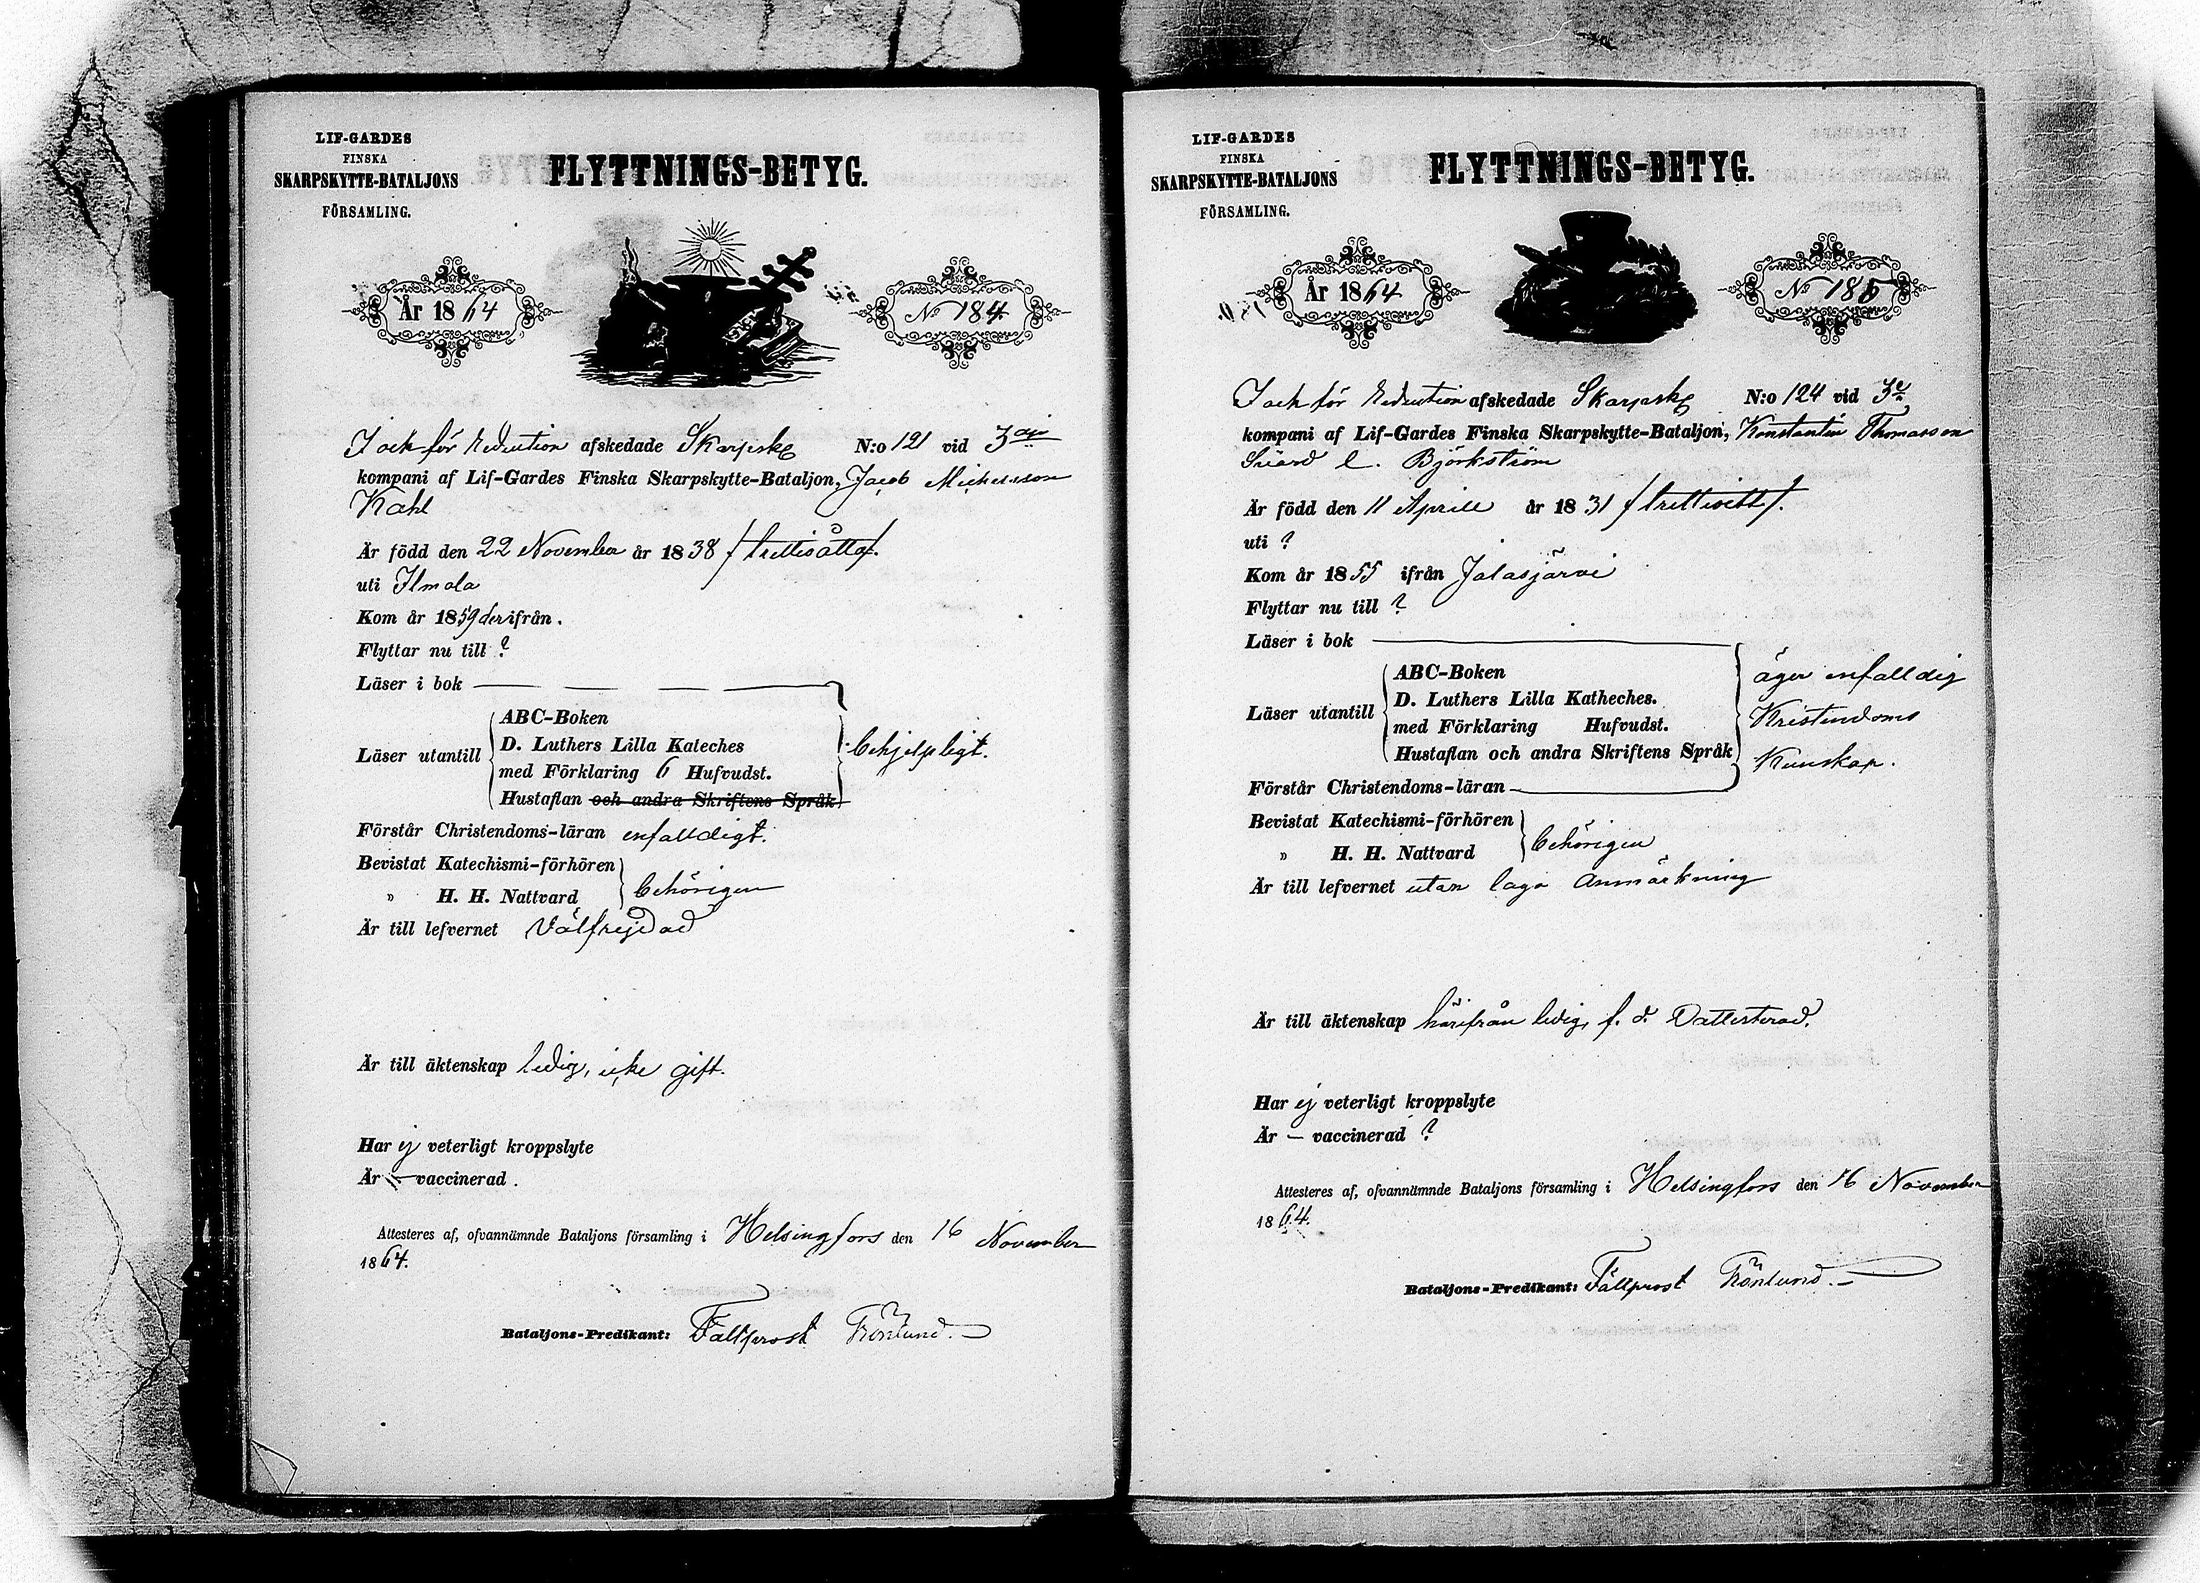 LIF-GARDES
FINSKA
SKARPSKYTTE-BATALJONS
FÖRSAMLING.
FLYTTNINGS-BETYG.
År 1864
No 184.
I och för reduction afskedade Skarpsk. N:o 121 vid 3dje
kompani af Lif-Gardes Finska Skarpskytte-Bataljon, Jacob Michelsson
Kahl
Är född den 22 November år 1838 /:trettioåtta:/.
uti Ilmola
Kom år 1859 derifrån.
Flyttar nu till ?
Läser i bok
Läser utantill
ABC-Boken
D. Luthers Lilla Kateches
med Förklaring 6 Hufvudst.
Hustaflan och andra Skriftens Språk
behjelpligt.
Förstår Christendoms-läran enfaldigt.
Bevistat Katechismi-förhören
» H. H. Nattvard
behörigen
Är till lefvernet Välfrejdad
Är till äktenskap ledig, icke gift.
Har ej veterligt kroppslyte
Är — vaccinerad.
Attesteres af, ofvannämnde Bataljons församling i Helsingfors den 16 November
1864.
Bataljons-Predikant: Fältprost Frönlund.
LIF-GARDES
FINSKA
SKARPSKYTTE-BATALJONS
FÖRSAMLING.
FLYTTNINGS-BETYG.
År 1864
No 185
I och för reduction afskedade Skarpsk. N:o 124 vid 3e
kompani af Lif-Gardes Finska Skarpskytte-Bataljon, Konstantin Thomasson
Björkström
Är född den 11 Aprill år 1831 /:trettioett:/.
uti ?
Kom år 1855 ifrån Jalasjärvi
Flyttar nu till ?
Läser i bok
Läser utantill
ABC-Boken
D. Luthers Lilla Katheches.
med Förklaring Hufvudst.
Hustaflan och andra Skriftens Språk
Förstår Christendoms-läran
äger enfalldig
Kristendoms
Kunskap.
Bevistat Katechismi-förhören
» H. H. Nattvard
behörigen
Är till lefvernet utan laga Anmärkning
Är till äktenskap härifrån ledig, f. d.
Har ej veterligt kroppslyte
Är — vaccinerad ?
Attesteres af, ofvannämnde Bataljons församling i Helsingfors den 16 November
1864.
Bataljons-Predikant: Fältprost Frönlund.